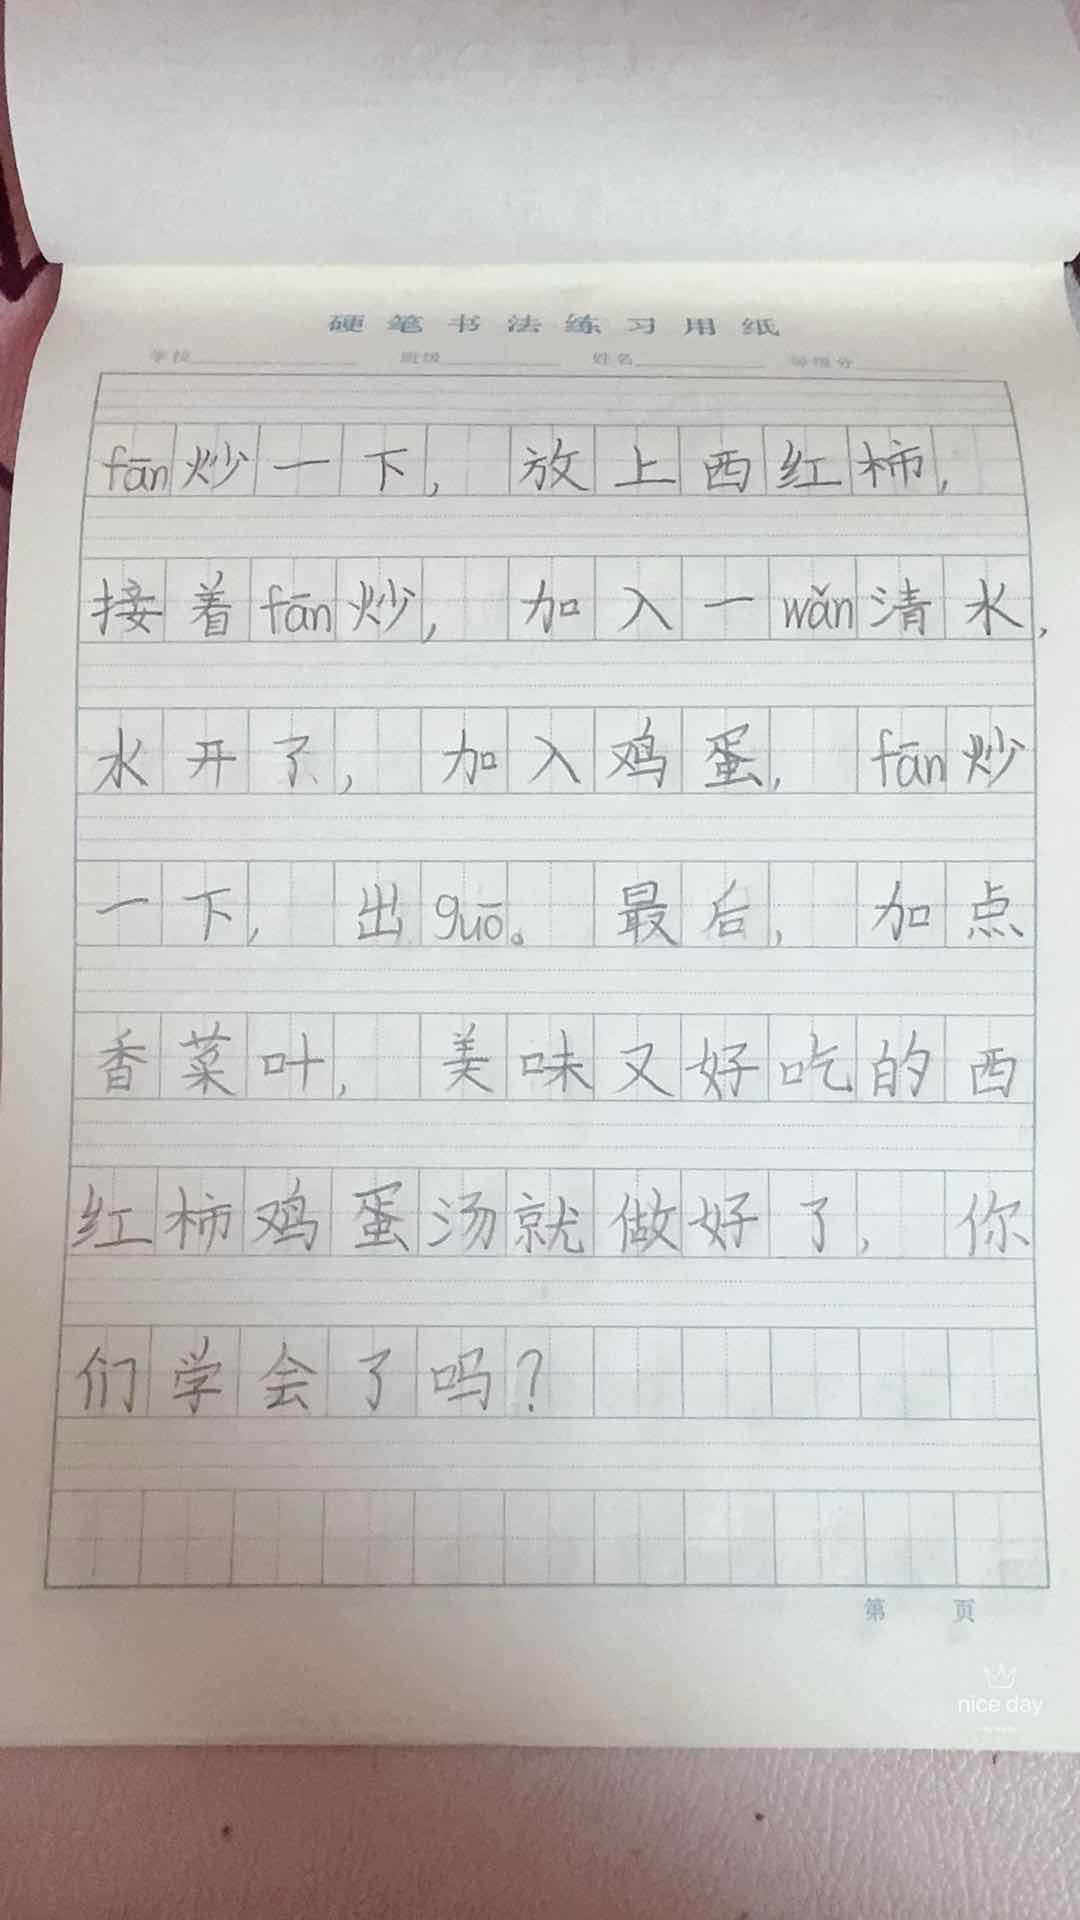 硬笔书法练习用纸
学校 班级 姓名 等级分
fān炒一下，放上西红柿，
接着fān炒，加入一wǎn清水，
水开了，加入鸡蛋，fān炒
一下，出guō。最后，加点
香菜叶，美味又好吃的西
红柿鸡蛋汤就做好了，你
们学会了吗？
第 页
nice day